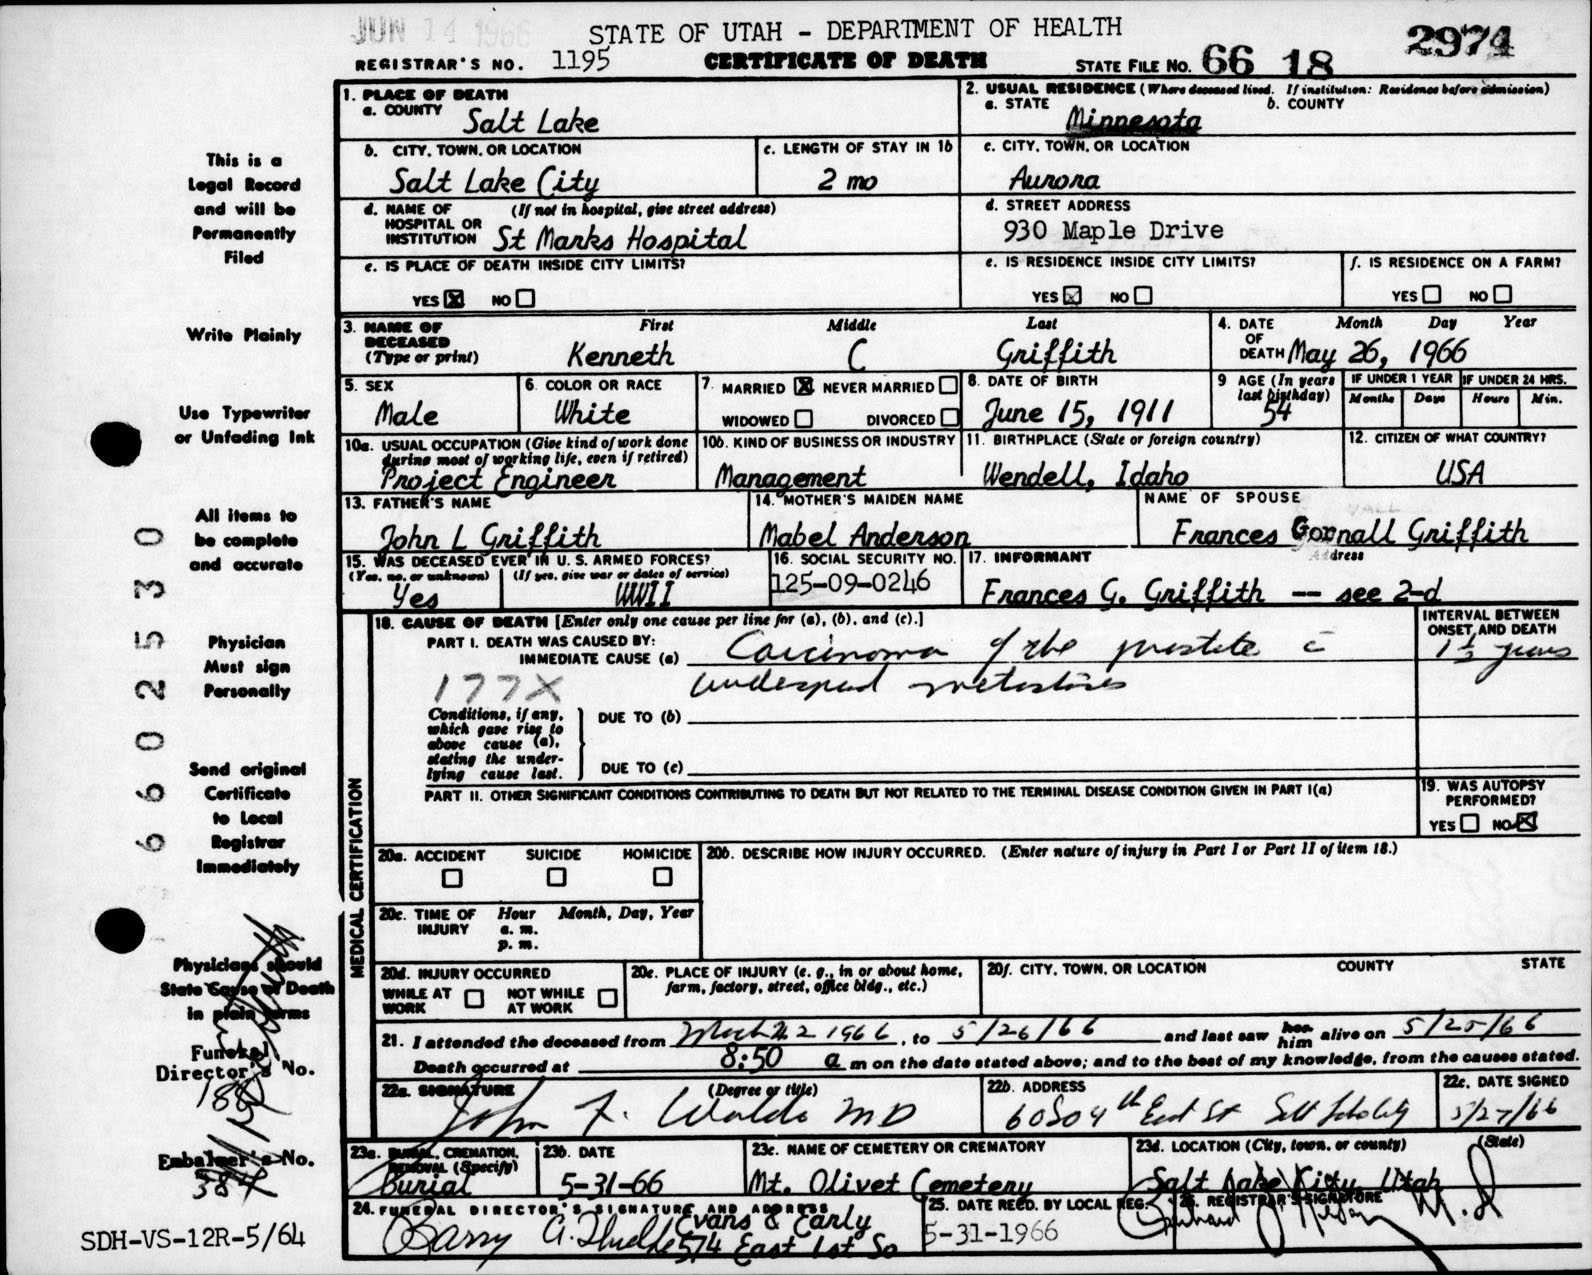 JUN 14 1966
STATE OF UTAH - DEPARTMENT OF HEALTH
2974
REGISTRAR'S NO. 1195 CERTIFICATE OF DEATH STATE FILE NO. 66 18
1. PLACE OF DEATH
a. COUNTY Salt Lake
2. USUAL RESIDENCE (Where deceased lived. If institution: Residence before admission)
a. STATE Minnesota b. COUNTY
b. CITY, TOWN, OR LOCATION Salt Lake City
c. LENGTH OF STAY IN 1b 2 mo
c. CITY, TOWN, OR LOCATION Aurora
d. NAME OF HOSPITAL OR INSTITUTION (If not in hospital, give street address) St Marks Hospital
d. STREET ADDRESS 930 Maple Drive
e. IS PLACE OF DEATH INSIDE CITY LIMITS?
YES ☒ NO ☐
e. IS RESIDENCE INSIDE CITY LIMITS?
YES ☒ NO ☐
f. IS RESIDENCE ON A FARM?
YES ☐ NO ☐
3. NAME OF DECEASED (Type or print)
First Middle Last
Kenneth C Griffith
4. DATE OF DEATH Month Day Year
May 26, 1966
5. SEX Male
6. COLOR OR RACE White
7. MARRIED ☒ NEVER MARRIED ☐
WIDOWED ☐ DIVORCED ☐
8. DATE OF BIRTH June 15, 1911
9 AGE (In years last birthday) 54
IF UNDER 1 YEAR Months Days
IF UNDER 24 HRS. Hours Min.
10a. USUAL OCCUPATION (Give kind of work done during most of working life, even if retired)
Project Engineer
10b. KIND OF BUSINESS OR INDUSTRY
Management
11. BIRTHPLACE (State or foreign country)
Wendell, Idaho
12. CITIZEN OF WHAT COUNTRY?
USA
13. FATHER'S NAME
John L Griffith
14. MOTHER'S MAIDEN NAME
Mabel Anderson
NAME OF SPOUSE
Frances Gornall Griffith
15. WAS DECEASED EVER IN U. S. ARMED FORCES?
(Yes, no, or unknown) (If yes, give war or dates of service)
Yes WWII
16. SOCIAL SECURITY NO.
125-09-0246
17. INFORMANT Address
Frances G. Griffith -- see 2-d
MEDICAL CERTIFICATION
18. CAUSE OF DEATH [Enter only one cause per line for (a), (b), and (c).]
INTERVAL BETWEEN ONSET AND DEATH
PART I. DEATH WAS CAUSED BY:
IMMEDIATE CAUSE (a) Carcinoma of the prostate c̄
years
177X widespread metastases
Conditions, if any, which gave rise to above cause (a), stating the underlying cause last.
DUE TO (b)
DUE TO (c)
PART II. OTHER SIGNIFICANT CONDITIONS CONTRIBUTING TO DEATH BUT NOT RELATED TO THE TERMINAL DISEASE CONDITION GIVEN IN PART I(a)
19. WAS AUTOPSY PERFORMED?
YES ☐ NO ☒
20a. ACCIDENT SUICIDE HOMICIDE
☐ ☐ ☐
20b. DESCRIBE HOW INJURY OCCURRED. (Enter nature of injury in Part I or Part II of item 18.)
20c. TIME OF INJURY Hour Month, Day, Year
a. m.
p. m.
20d. INJURY OCCURRED
WHILE AT WORK ☐ NOT WHILE AT WORK ☐
20e. PLACE OF INJURY (e. g., in or about home, farm, factory, street, office bldg., etc.)
20f. CITY, TOWN, OR LOCATION COUNTY STATE
21. I attended the deceased from March 1966, to 5/26/66 and last saw her him alive on 5/25/66
Death occurred at 8:50 a m on the date stated above; and to the best of my knowledge, from the causes stated.
22a. SIGNATURE (Degree or title)
John F. Waldo MD
22b. ADDRESS
East St Salt Lake City
22c. DATE SIGNED
5/27/66
23a. BURIAL, CREMATION, REMOVAL (Specify)
Burial
23b. DATE
5-31-66
23c. NAME OF CEMETERY OR CREMATORY
Mt. Olivet Cemetery
23d. LOCATION (City, town, or county) (State)
Salt Lake City, Utah
24. FUNERAL DIRECTOR'S SIGNATURE AND ADDRESS
Evans & Early
574 East 1st So
25. DATE RECD. BY LOCAL REG.
5-31-1966
26. REGISTRAR'S SIGNATURE
M.D
This is a
Legal Record
and will be
Permanently
Filed
Write Plainly
Use Typewriter
or Unfading Ink
All items to
be complete
and accurate
Physician
Must sign
Personally
Send original
Certificate
to Local
Registrar
Immediately
Physicians should
State Cause of Death
in plain terms
Funeral
Director's No.
Embalmer's No.
384
6602530
SDH-VS-12R-5/64